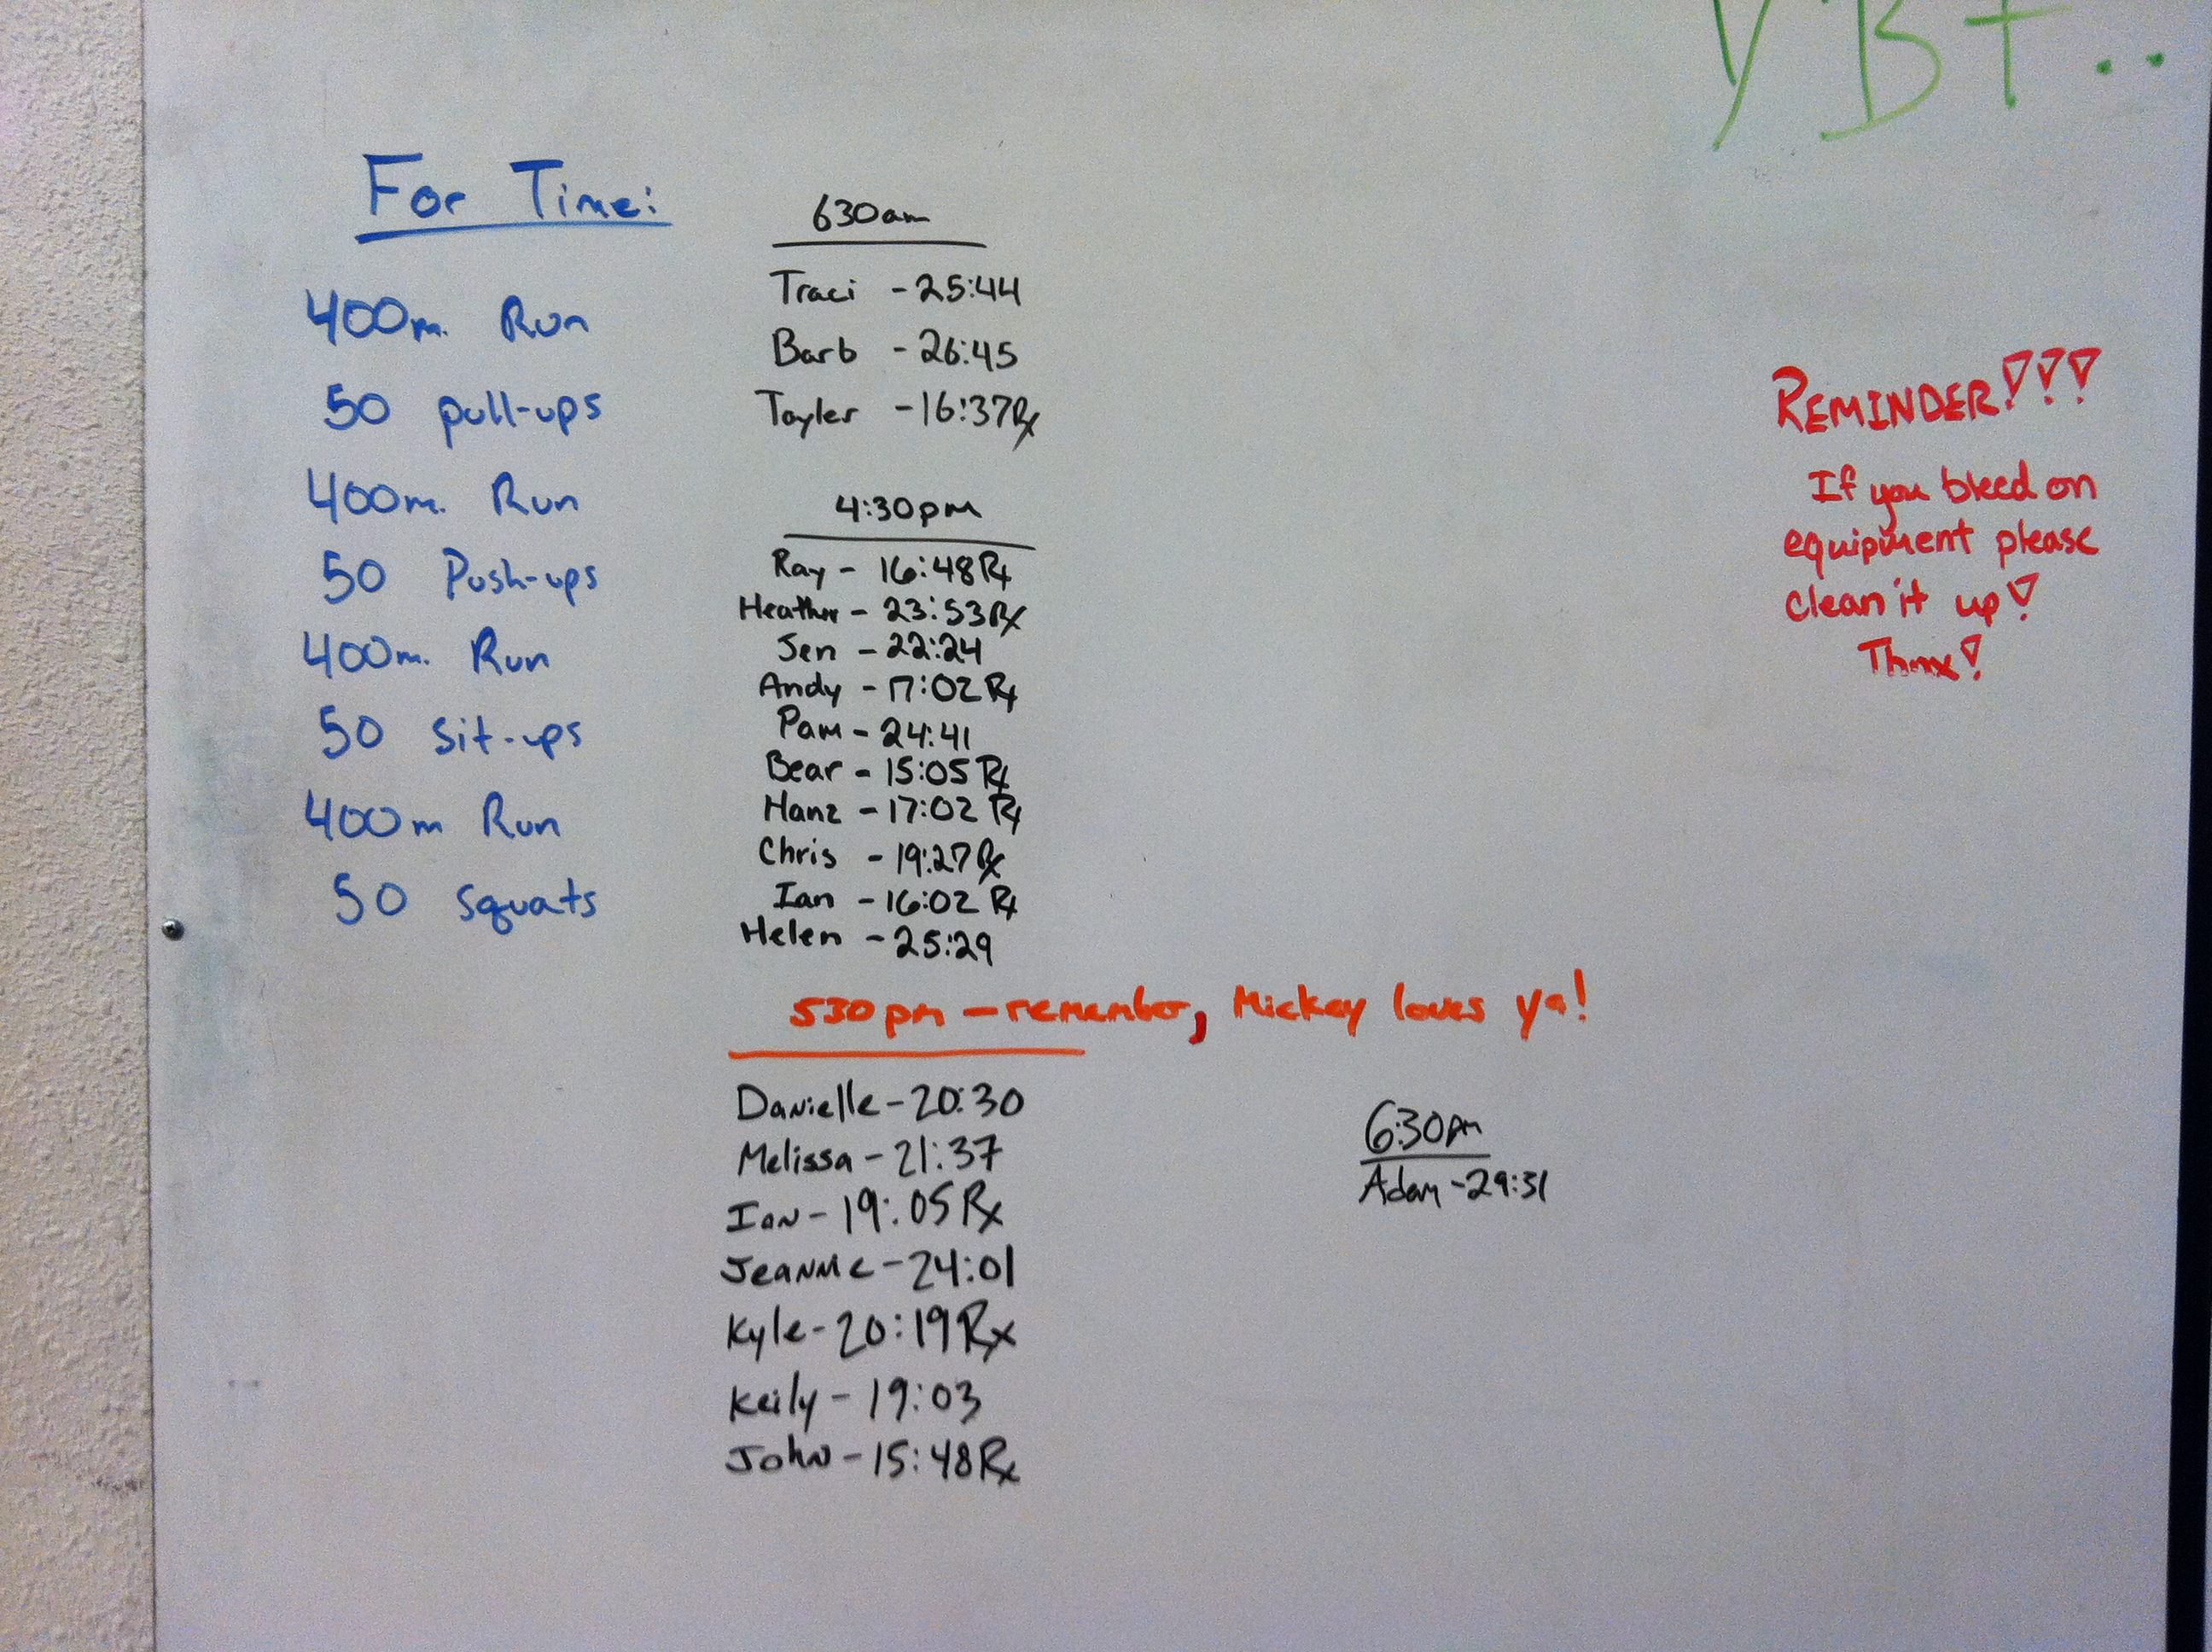 VB+..
For Time:
400m. Run
50 pull-ups
400m. Run
50 Push-ups
400m. Run
50 Sit-ups
400m Run
50 squats
630am
Traci - 25:44
Barb - 26:45
Tayler - 16:37 Rx
4:30pm
Ray - 16:48 Rx
Heather - 23:53 Rx
Jen - 22:24
Andy - 17:02 Rx
Pam - 24:41
Bear - 15:05 Rx
Hanz - 17:02 Rx
Chris - 19:27 Rx
Ian - 16:02 Rx
Helen - 25:29
530pm - remember, Mickey loves ya!
Danielle - 20:30
Melissa - 21:37
Ian - 19:05 Rx
Jeanne - 24:01
Kyle - 20:19 Rx
Keily - 19:03
John - 15:48 Rx
6:30pm
Adam - 29:31
REMINDER!!!
If you bleed on
equipment please
clean it up!
Thnx!